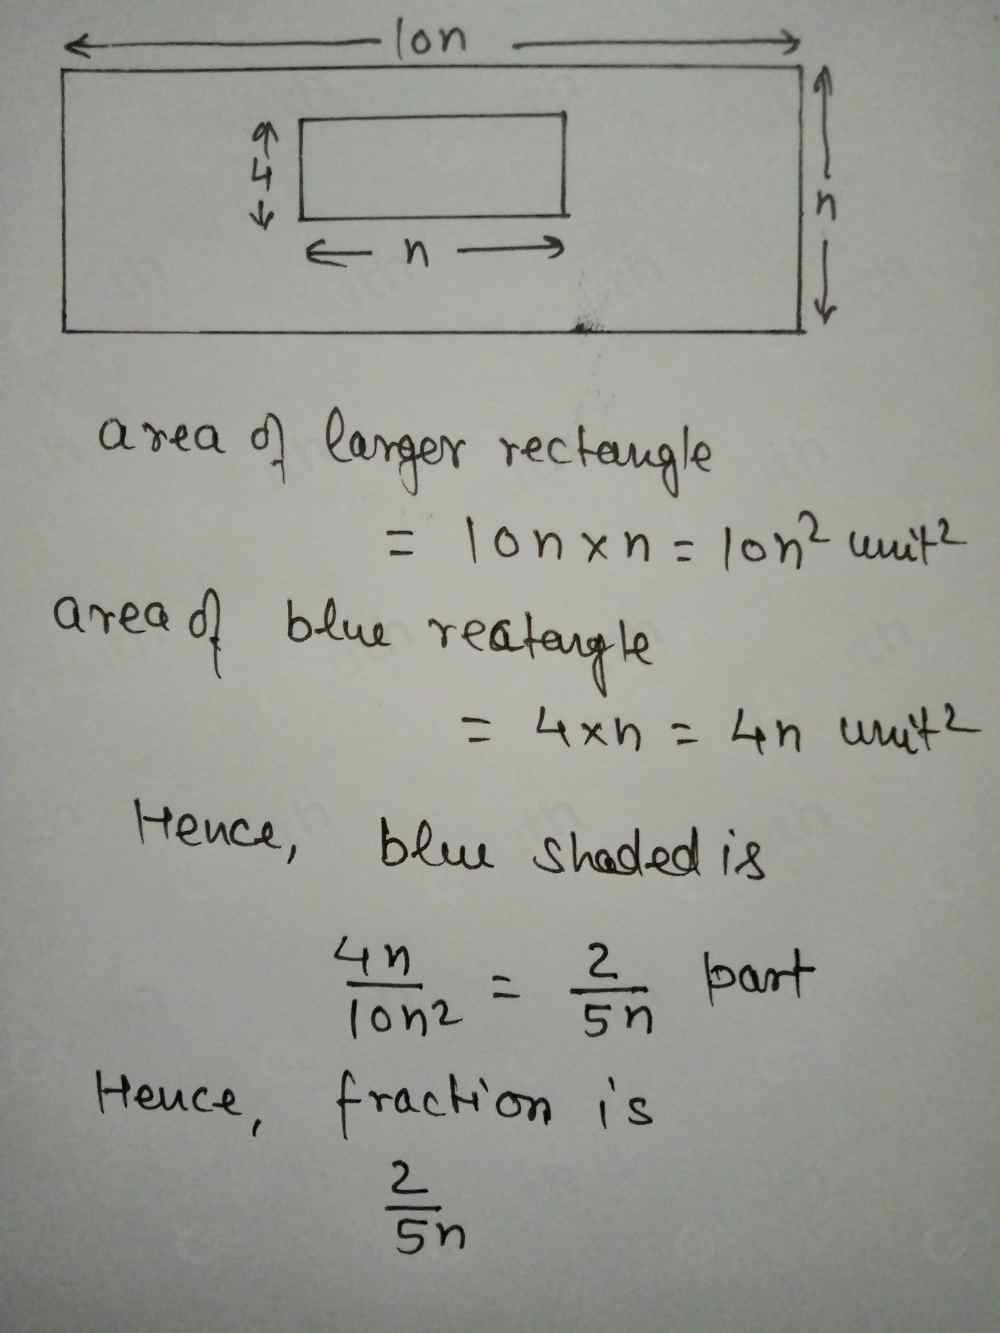 10n
4
n
n
area of larger rectangle
= 10n × n = 10n² unit²
area of blue reatangle
= 4×n = 4n unit²
Hence, blue shaded is
4n/10n² = 2/5n part
Hence, fraction is
2/5n